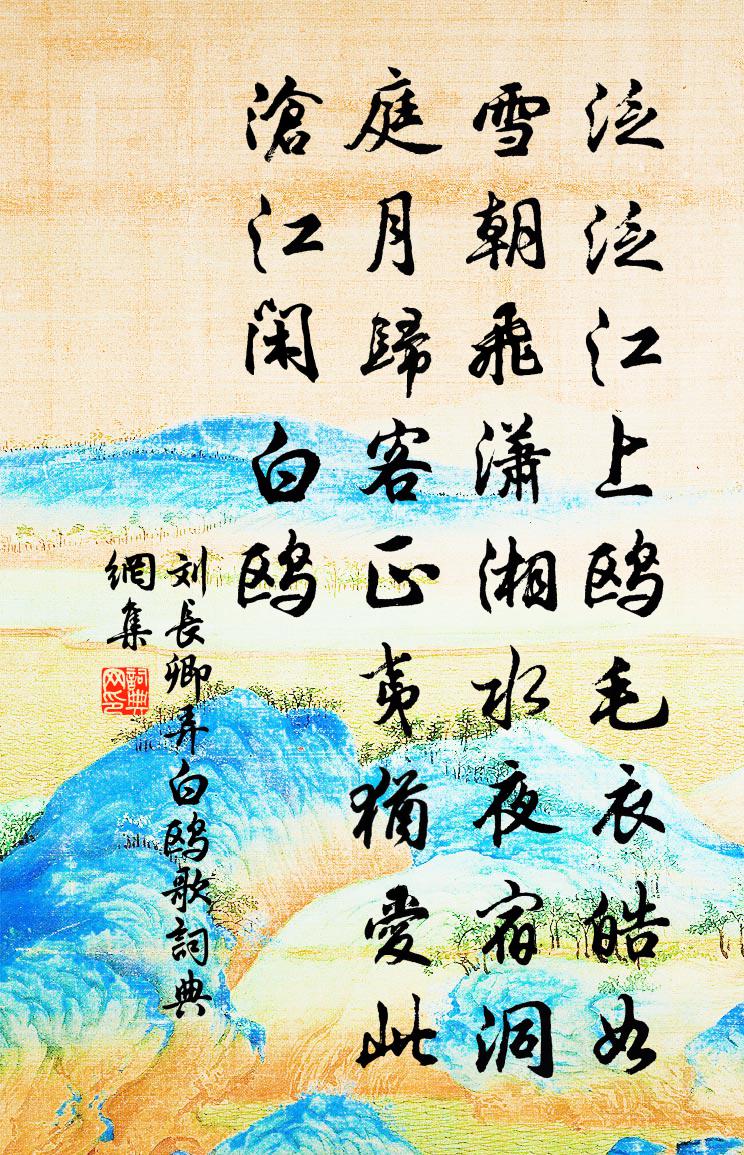 泛泛江上鸥毛衣皓如
雪朝飛潇湘水夜宿洞
庭月歸客正夷猶愛此
滄江闲白鸥
刘長卿弄白鸥歌詞典
網集
詞典
网印